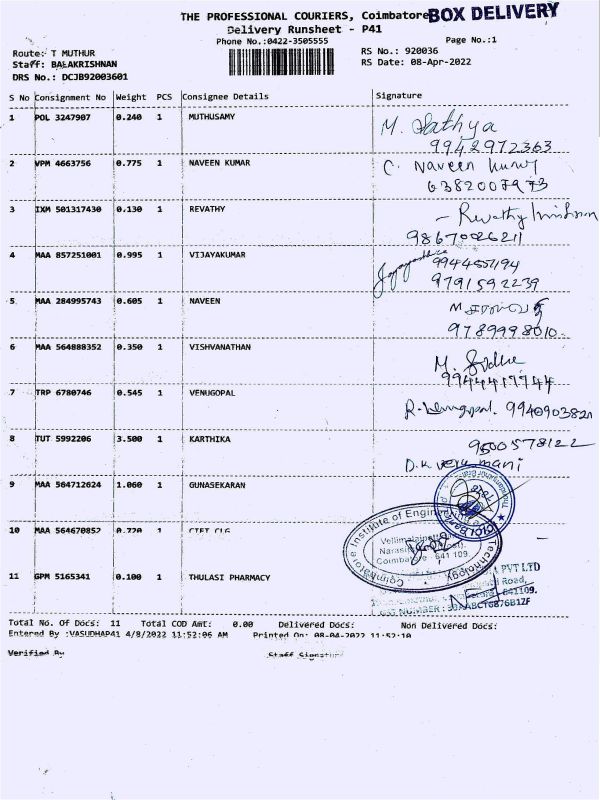 THE PROFESSIONAL COURIERS, Coimbatore BOX DELIVERY
Delivery Runsheet - P41
Phone No.:0422-3505555 Page No.:1
Route:- T MUTHUR RS No.: 920036
Staff: BALAKRISHNAN RS Date: 08-Apr-2022
DRS No.: DCJB92003601
S No Consignment No Weight PCS Consignee Details Signature
1 POL 3247907 0.240 1 MUTHUSAMY M. Sathya
9942972363
2 VPM 4663756 0.775 1 NAVEEN KUMAR C. Naveen Kumar
6382007973
3 IXM 501317430 0.130 1 REVATHY - Revathy
9867026211
4 MAA 857251001 0.995 1 VIJAYAKUMAR
9791592239
5 MAA 284995743 0.605 1 NAVEEN
9789998010
6 MAA 564888352 0.350 1 VISHVANATHAN M.
7 TRP 6780746 0.545 1 VENUGOPAL R. Venugopal. 9940903821
8 TUT 5992206 3.500 1 KARTHIKA 9500578122
D.K veeramani
9 MAA 564712624 1.060 1 GUNASEKARAN
10 MAA 564670852 0.720 1 CIET CLG
Coimbatore Institute of Engineering Technology
Coimbatore 641 109.
11 GPM 5165341 0.100 1 THULASI PHARMACY
PVT LTD
Road,
641109.
Total No. Of Docs: 11 Total COD Amt: 0.00 Delivered Docs: Non Delivered Docs:
Entered By :VASUDHAP41 4/8/2022 11:52:06 AM Printed On: 08-04-2022 11:52:10
Verified By Staff Signature